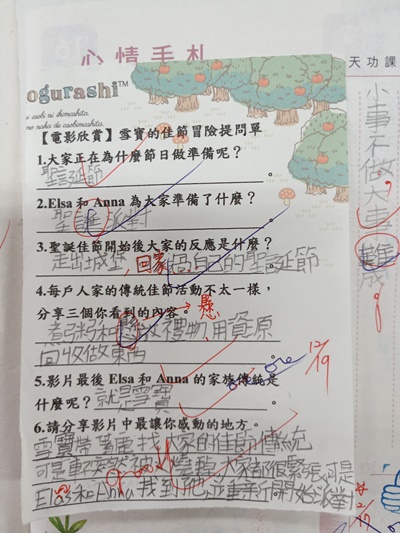 心情手札
天功課
ogurashi™
小事不做大事難成
【電影欣賞】雪寶的佳節冒險提問單
1.大家正在為什麼節日做準備呢？
聖誕節。
2.Elsa 和 Anna 為大家準備了什麼？
聖誕派對。
3.聖誕佳節開始後大家的反應是什麼？
走出城堡,回家過自己的聖誕節
4.每戶人家的傳統佳節活動不太一樣，
分享三個你看到的內容。
懸
煮粥和懸掛禮物,用資原
回收做東西。
one more
12/19
5.影片最後 Elsa 和 Anna 的家族傳統是
什麼呢？就是雪寶。
6.請分享影片中最讓你感動的地方。
雪寶帶著鹿找大家的佳節傳統
可是車突然被火燒,大家都很緊張,可是
Elsa和Anna找到他,並重新開始派對
good